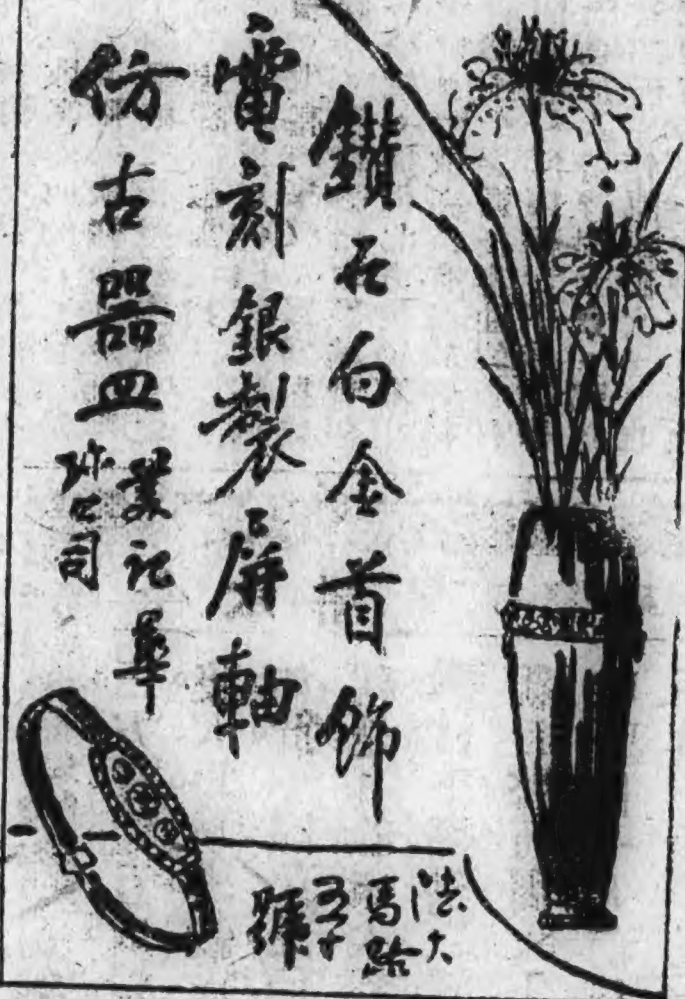 鑽石白金首飾
電刻銀製屏軸
仿古器皿
記華
珎公司
法大
馬路
號